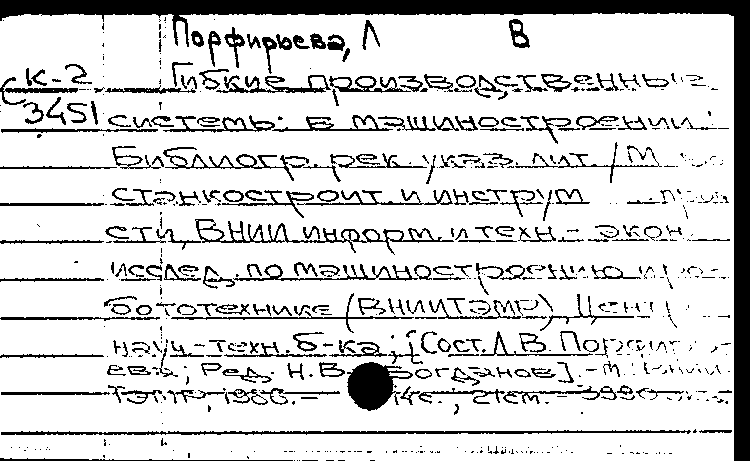 Порфирьева, Л В
К-2 Гибкие производственные
С 3451 системы в машиностроении:
Библиогр. рек. указ. лит. / М
станкостроит. и инструм
сти, ВНИИ информ. и техн.-экон.
исслед. по машиностроению и ро-
бототехнике (ВНИИТЭМР), Центр
науч.-техн. б-ка; [Сост. Л.В. Порфирь-
ева; Ред. Н.В. Богданов]. - М.: ВНИИ
ТЭМР, 1986. - 14с.; 21см. - 3990